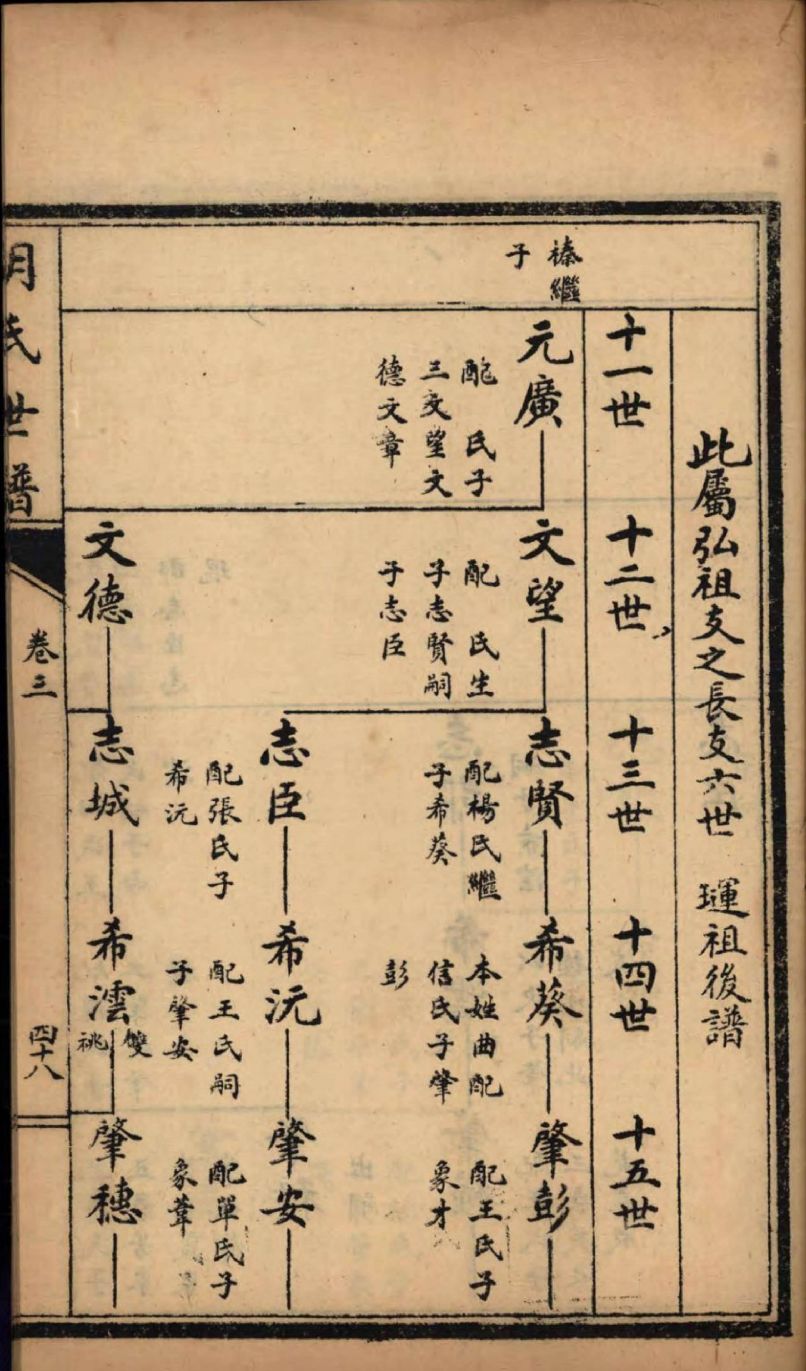 此屬弘祖支之長支六世　琿祖後譜
十一世
十二世
十三世
十四世
十五世
榛繼
子
元廣
配　氏子
三文望文
德文章
文望
配　氏生
子志賢嗣
子志臣
志賢
配楊氏繼
子希葵
希葵
本姓曲配
信氏子肇
彭
肇彭
配王氏子
象才
志臣
配張氏子
希沅
希沅
配王氏嗣
子肇安
肇安
配單氏子
象葦
文德
志城
希澐
雙
祧
肇穗
氏世譜
卷三
四十八